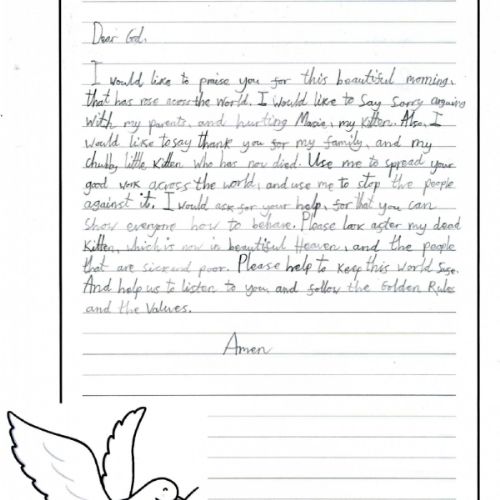 Dear God,
I would like to praise you for this beautiful morning,
that has rose across the world. I would like to say sorry arguing
with my parents, and hurting Maxie, my kitten. Also, I
would like to say thank you for my family, and my
chubby little kitten who has now died. Use me to spread your
good work across the world, and use me to stop the people
against it. I would ask for your help, for that you can
show everyone how to behave. Please look after my dead
kitten, which is now in beautiful Heaven, and the people
that are sick and poor. Please help to keep this world safe.
And help us to listen to you and follow the Golden Rules
and the Values.
Amen